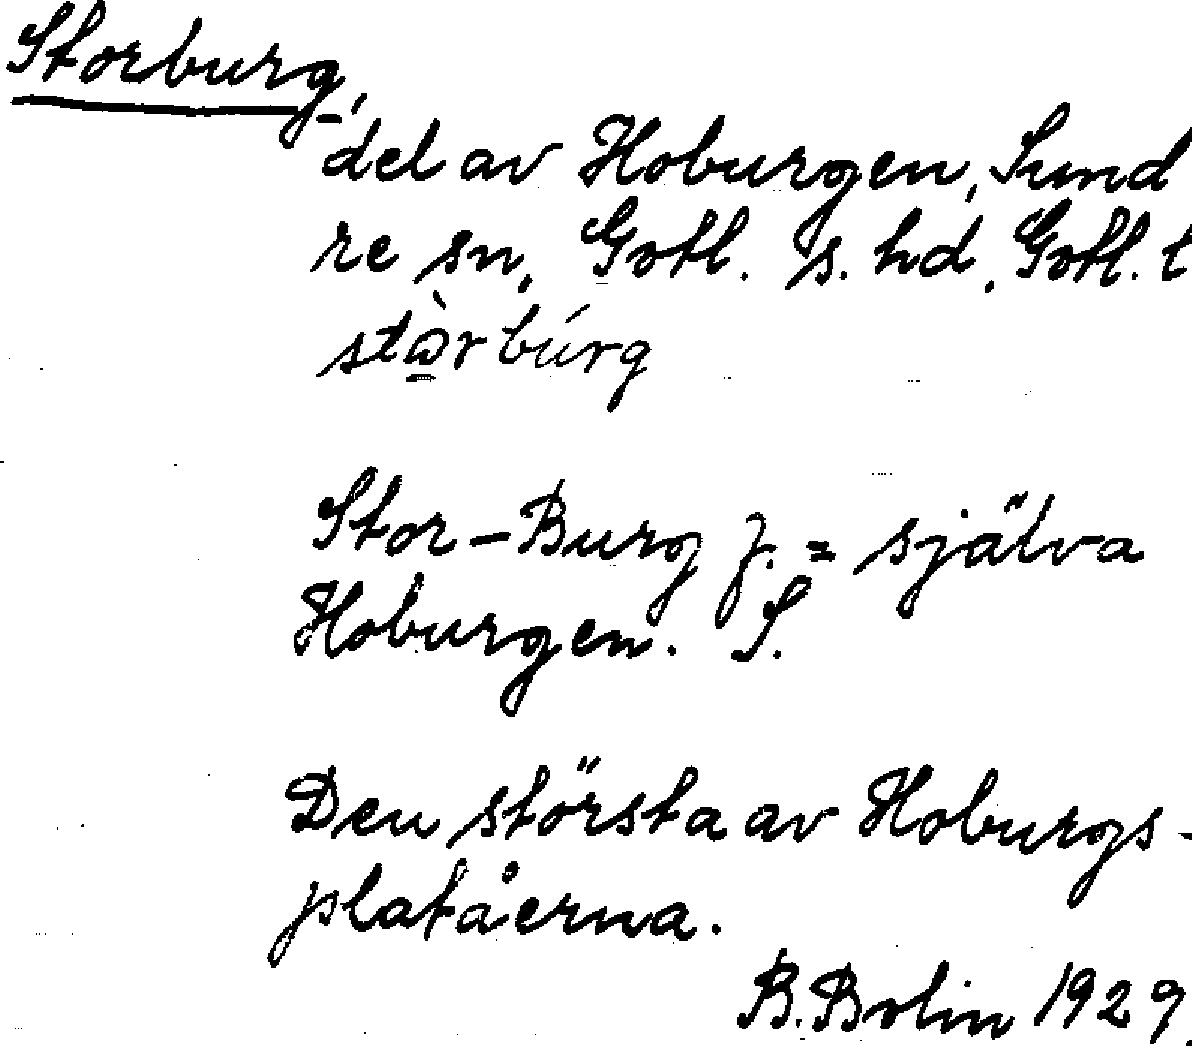 Storburg,
del av Hoburgen, Sund
re sn, Gotl. s. hd. Gotl. l
Stor-Burg f. = själva
Hoburgen. S.
Den största av Hoburgs-
platåerna.
B. Bolin 1929.